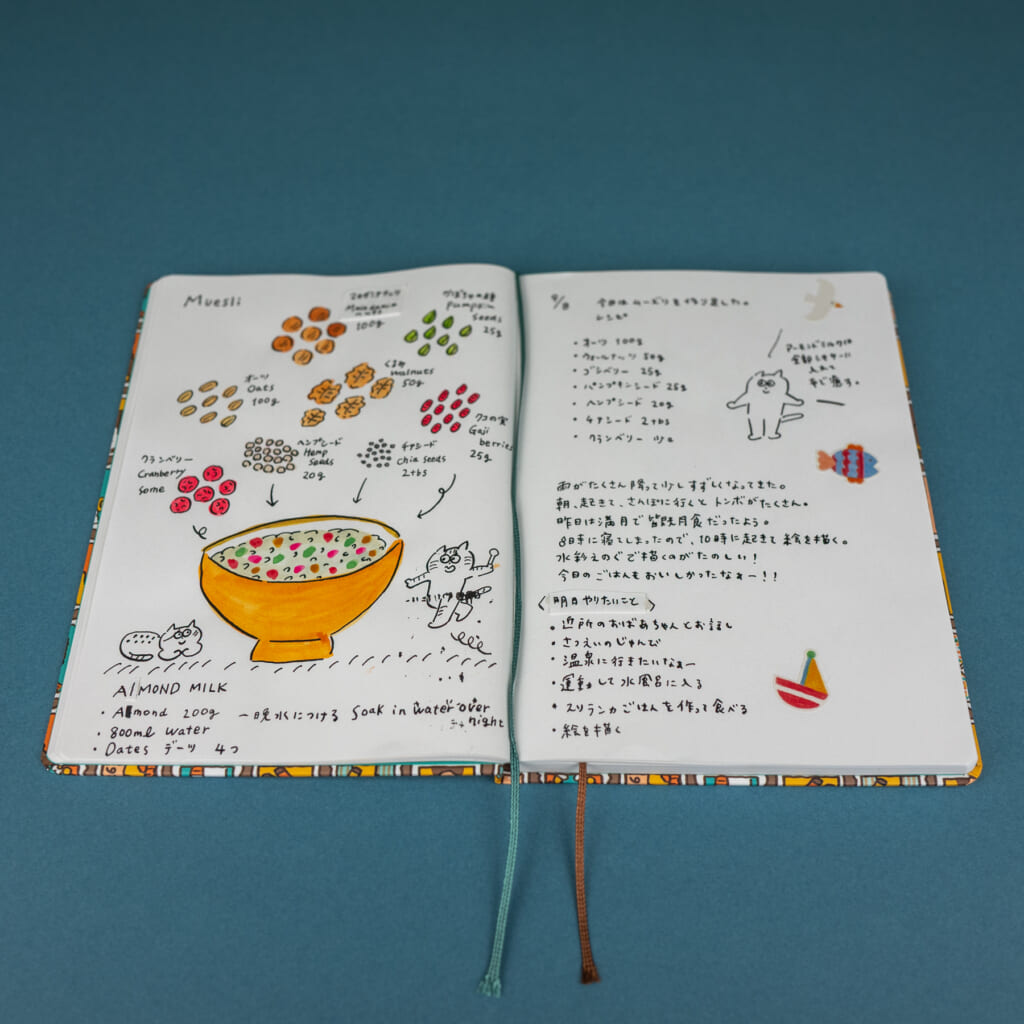 Muesli
マカダミアナッツ
Macadamia
nuts
100g
かぼちゃの種
Pumpkin
Seeds
25g
オーツ
Oats
100g
くるみ
walnuts
50g
クコの実
Goji
berries
25g
ヘンプシード
Hemp
Seeds
20g
チアシード
chia seeds
2+bs
クランベリー
Cranberry
Some
ALMOND MILK
・Almond 200g 一晩水につける Soak in water over
night
・800ml water
・Dates デーツ 4つ
9/8 今日はムーズリを作りました。
レシピ
・オーツ 100g
・ウォールナッツ 50g
・ゴジベリー 25g
・パンプキンシード 25g
・ヘンプシード 20g
・チアシード 2+bs
・クランベリー 少々
アーモンドミルクは
全部ミキサーに
入れて
雨がたくさん降って少しすずしくなってきた。
朝、起きて、さんぽに行くとトンボがたくさん。
昨日は満月で皆既月食だったよう。
8時に寝てしまったので、10時に起きて絵を描く。
水彩えのぐで描くのがたのしい!
今日のごはんもおいしかったなぁー!!
明日やりたいこと
・近所のおばあちゃんとお話し
・さつえいのじゅんび
・温泉に行きたいなぁー
・運動して水風呂に入る
・スリランカごはんを作って食べる
・絵を描く